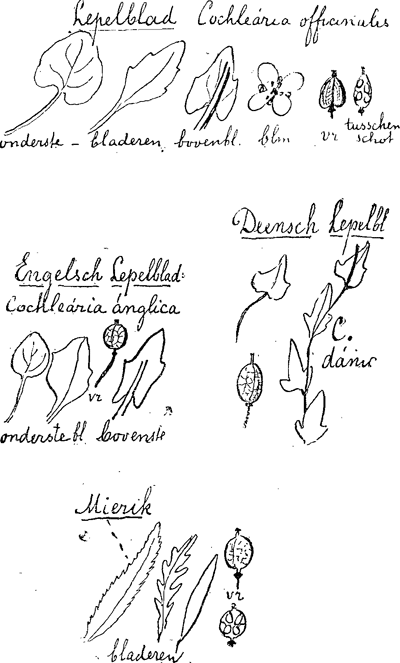 Lepelblad Cochleária officinalis
onderste - bladeren bovenbl. blm vr tusschen
schot
Deensch Lepelbl
C.
dánic
Engelsch Lepelblad:
Cochleária ánglica
vr
onderste bl. bovenste
Mierik
vr
bladeren